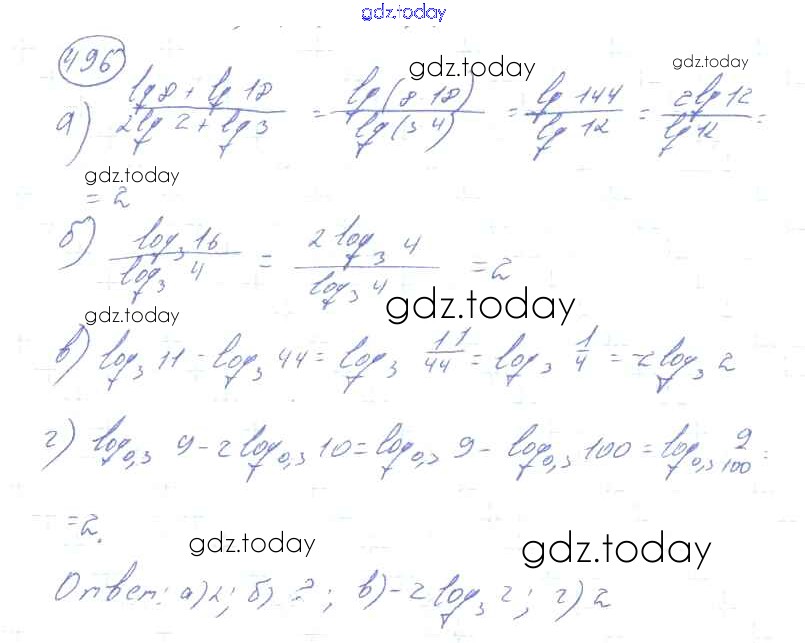 gdz.today
496
gdz.today
gdz.today
а) (lg 8 + lg 18)/(2lg 2 + lg 3) = lg(8·18)/lg(3·4) = lg 144/lg 12 = 2lg 12/lg 12 =
gdz.today
= 2
б) log₃ 16/log₃ 4 = 2 log₃ 4/log₃ 4 = 2
gdz.today
gdz.today
в) log₃ 11 - log₃ 44 = log₃ 11/44 = log₃ 1/4 = -2log₃ 2
г) log₀,₃ 9 - 2log₀,₃ 10 = log₀,₃ 9 - log₀,₃ 100 = log₀,₃ 9/100 =
= 2.
gdz.today
gdz.today
Ответ: а) 2; б) 2; в) -2log₃ 2; г) 2